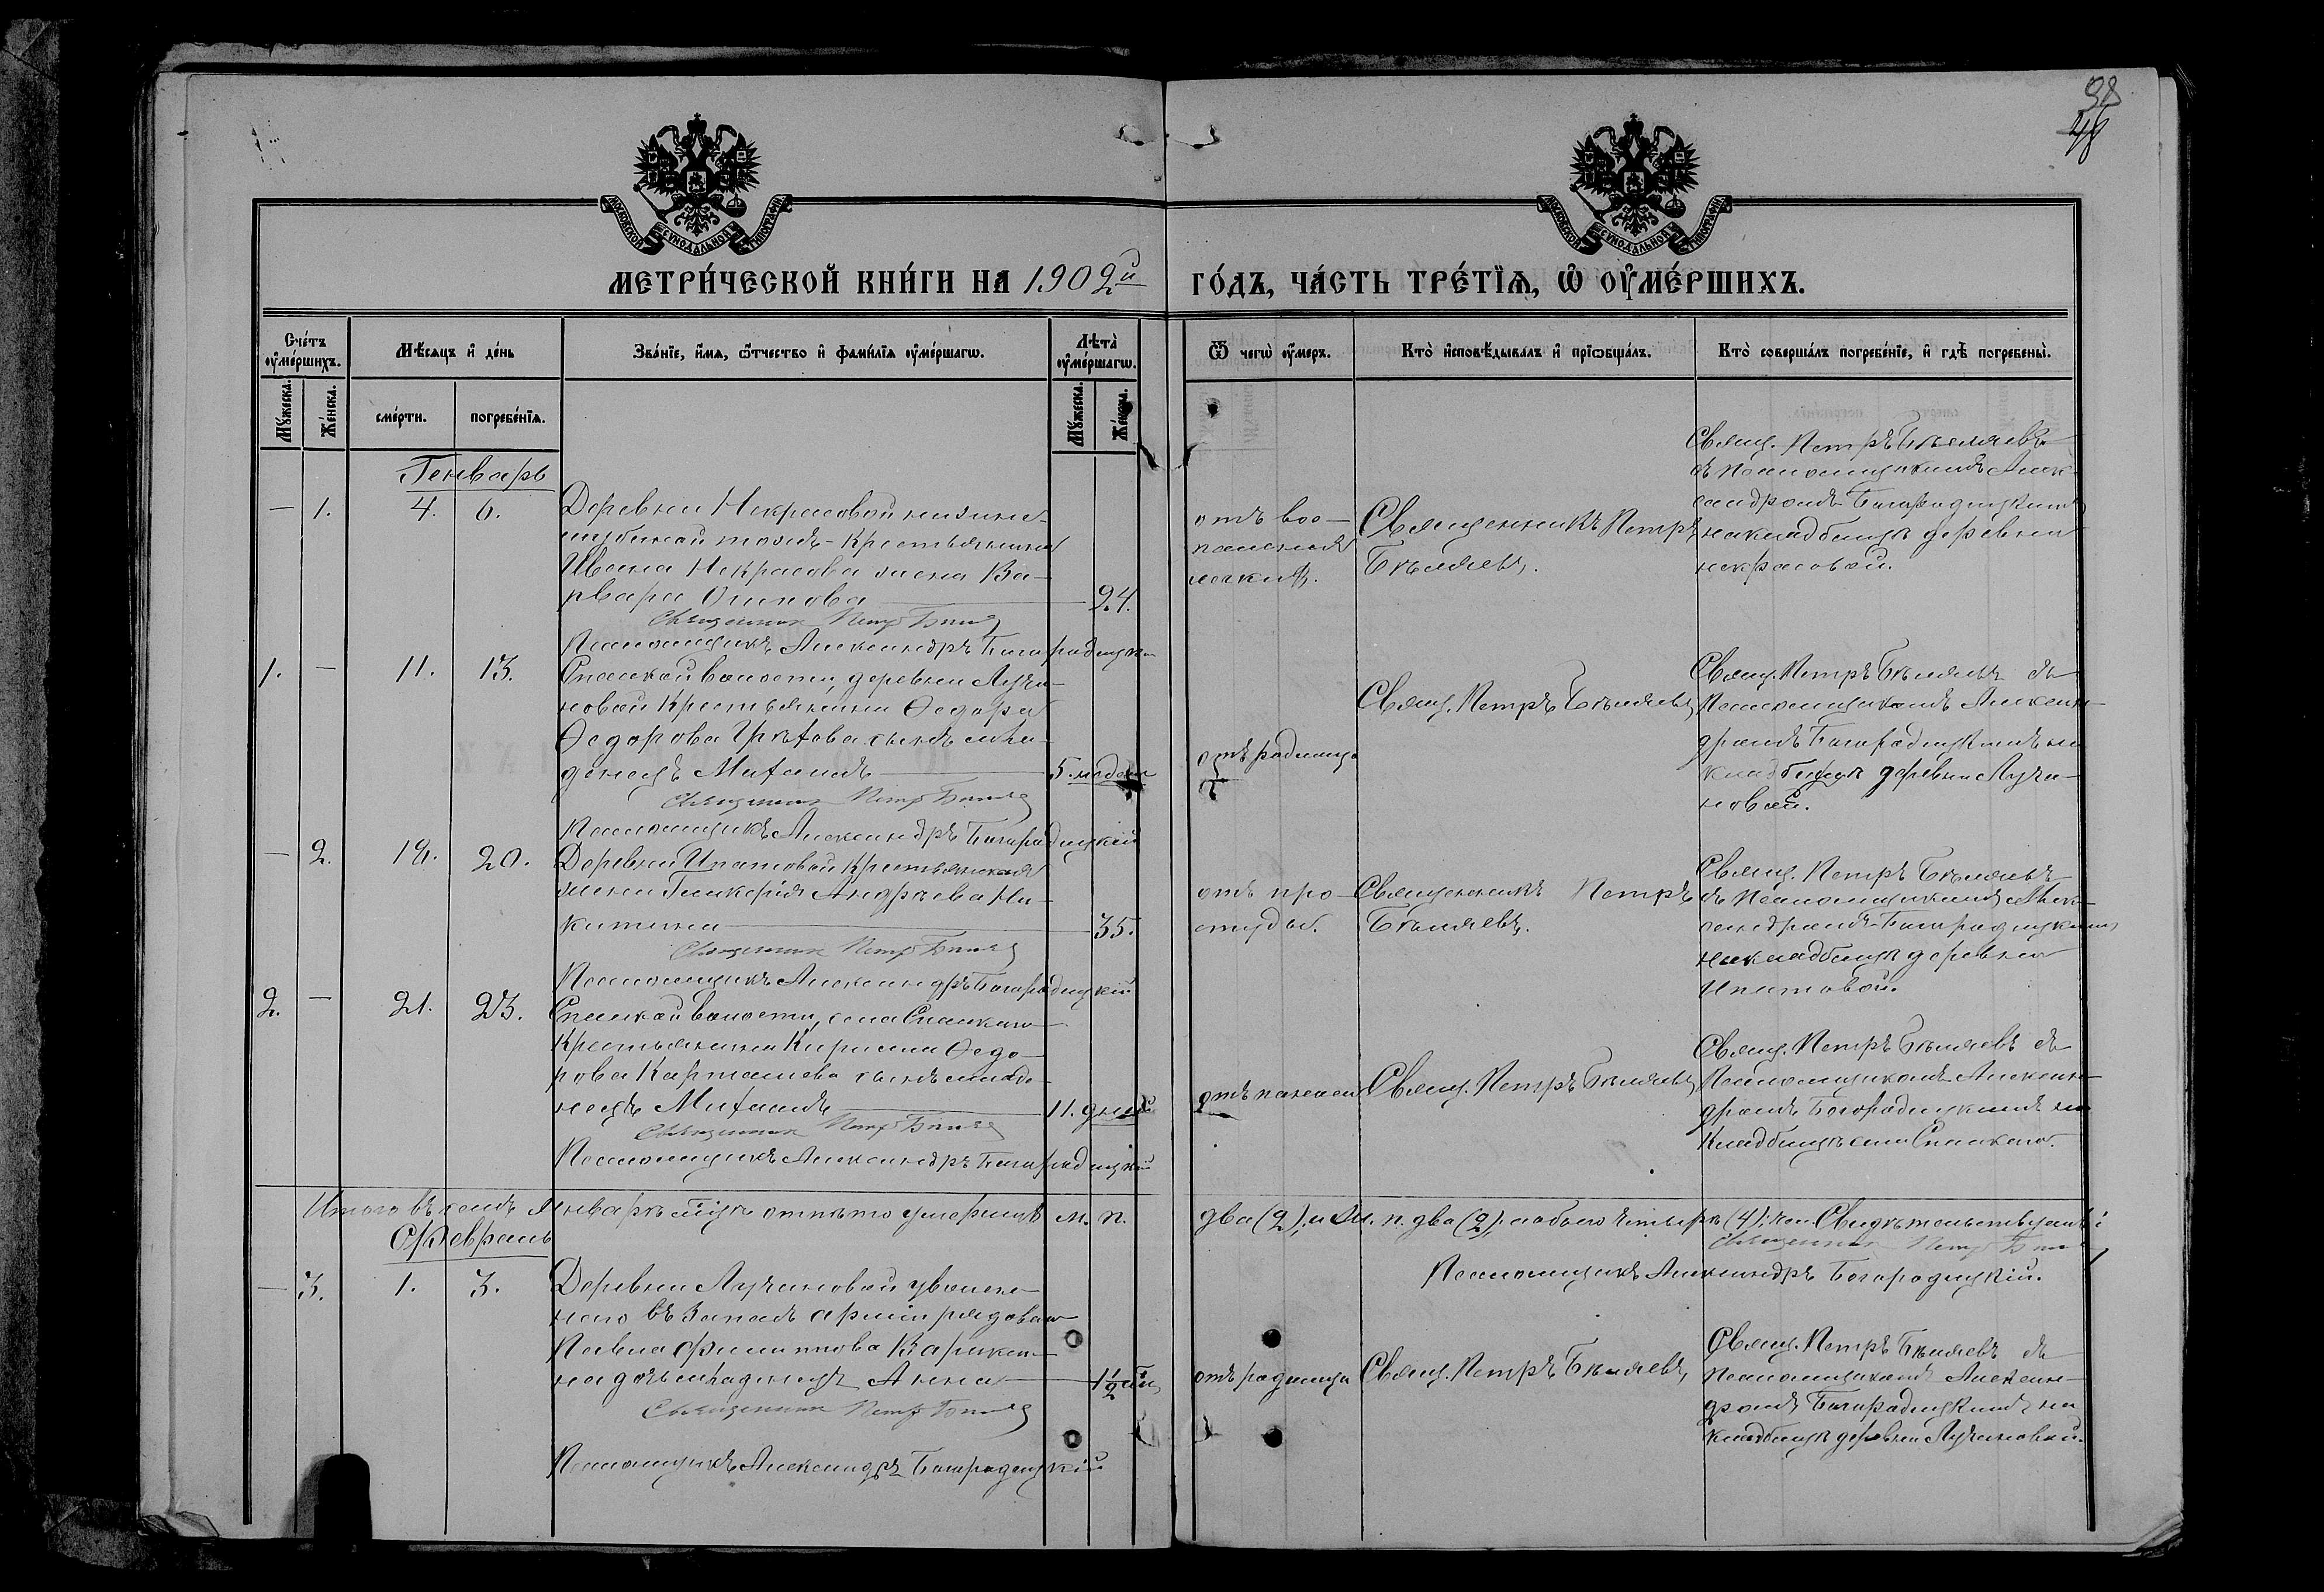 98
48
МОСКОВСКОЙ СѴНОДАЛЬНОЙ ТИПОГРАФІИ
МОСКОВСКОЙ СѴНОДАЛЬНОЙ ТИПОГРАФІИ
МЕТРИ́ЧЕСКОЙ КНИ́ГИ НА 1902й
ГО́ДЪ, ЧА́СТЬ ТРЕ́ТЇѦ, Ѡ҆ ОУ҆МЕ́РШИХЪ.
Сче́тъ оу҆ме́ршихъ.
Мѣ́сяцъ и҆ де́нь
Зва́нїе, и҆́мя, ѻ҆́тчество и҆ фами́лїя оу҆ме́ршагѡ.
Лѣта̀ оу҆ме́ршагѡ.
Ѿ чегѡ̀ оу҆́меръ.
Кто̀ и҆сповѣ́дывалъ и҆ прїѡбща́лъ.
Кто̀ соверша́лъ погребе́нїе, и҆ гдѣ̀ погребены̀.
Мꙋ́жеска.
Же́нска.
сме́рти.
погребе́нїя.
Мꙋ́жеска.
Же́нска.
Генварь
— 1. 4. 6.
Деревни Некрасовой
крестьянина
Ивана Некрасова жена Ва-
рвара Осипова — 24.
Священник Петр Бѣляев
Псаломщикъ Александръ Богородицкій
отъ вос-
паленія
легких.
Священникъ Петръ
Бѣляевъ.
Свящ. Петръ Бѣляевъ
съ псаломщикомъ Алек-
сандромъ Богородицкимъ
на кладбищѣ деревни
Некрасовой.
1. — 11. 13.
Спасской волости, деревни Лучи-
новой крестьянина Ѳедора
Ѳедорова Грѣхова сынъ мла-
денецъ Михаилъ — 5. недель
Священник Петр Бѣляев
Псаломщикъ Александръ Богородицкій
отъ родимца
Свящ. Петръ Бѣляевъ
Свящ. Петръ Бѣляевъ съ
Псаломщикомъ Алексан-
дромъ Богородицкимъ на
кладбищѣ деревни Лучи-
новой.
— 2. 18. 20.
Деревни Ипатовой крестьянская
жена Гликерія Андреева Ни-
китина — 35.
Священник Петр Бѣляев
Псаломщикъ Александръ Богородицкій
отъ про-
студы.
Священникъ Петръ
Бѣляевъ.
Свящ. Петръ Бѣляевъ
съ Псаломщикомъ Алек-
сандромъ Богородицкимъ
на кладбищѣ деревни
Ипатовой.
2. — 21. 23.
Спасской волости, села Спасскаго
Крестьянина Кирилла Ѳедо-
рова Карташева сынъ младе-
нецъ Михаилъ — 11. дней
Священник Петр Бѣляев
Псаломщикъ Александръ Богородицкій
Свящ. Петръ Бѣляевъ
Свящ. Петръ Бѣляевъ съ
Псаломщикомъ Алексан-
дромъ Богородицкимъ на
Кладбищѣ села Спасскаго.
Итого въ семъ Январѣ м-цѣ отпѣто умершихъ м. п. два (2), и ж. п. два (2), а обоего четыре (4); что Свидѣтельствуемъ:
Священник Петр Бѣляев
Псаломщикъ Александръ Богородицкій.
Февраль
— 3. 1. 3.
Деревни Лучиновой уволен-
наго въ запасъ арміи рядоваго
Павла Филиппова
на дочь младенецъ Анна — 1½
Священник Петр Бѣляев
Псаломщикъ Александръ Богородицкій
отъ родимца
Свящ. Петръ Бѣляевъ
Свящ. Петръ Бѣляевъ съ
псаломщикомъ Алексан-
дромъ Богородицкимъ на
кладбищѣ деревни Лучиновой.